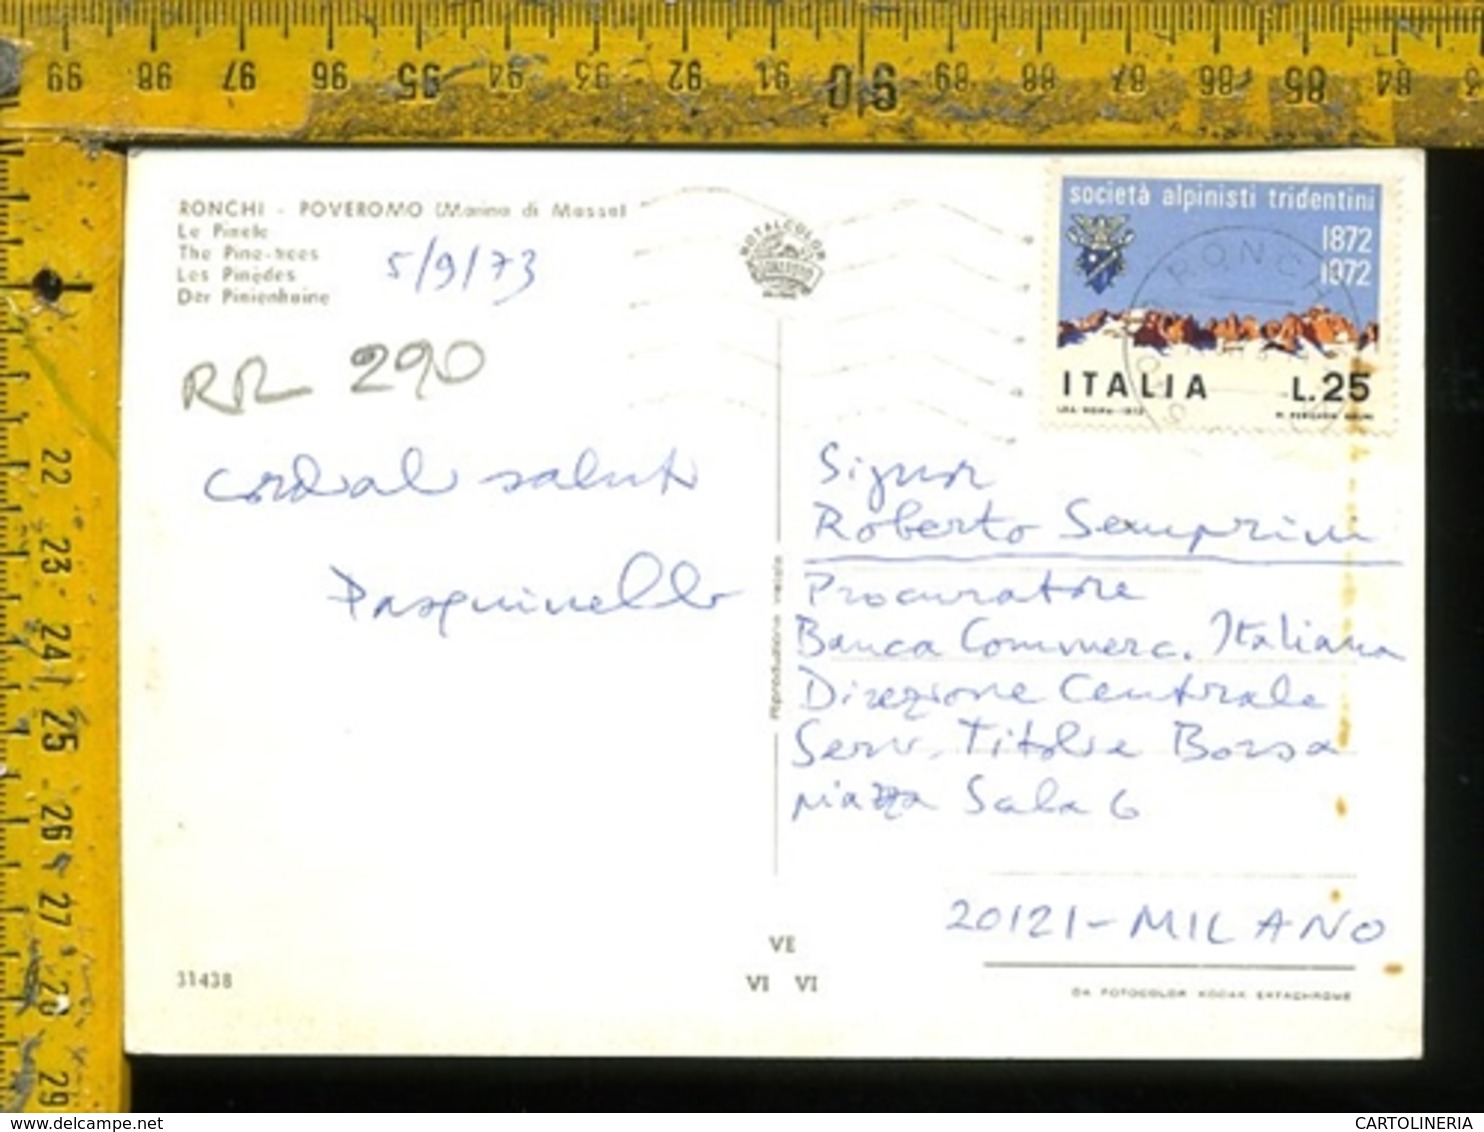 99 98 97 96 95 94 93 92 91 90 89 88 87 86 85 84
22 23 24 25 26 27 28 29
RONCHI - POVEROMO (Marina di Massa)
Le Pinete
The Pine-trees
Les Pinèdes
Der Pinienhaine
5/9/73
RR 290
ROTALCOLOR
società alpinisti tridentini
1872
1972
ITALIA L.25
cordiali saluti
Pasquinelli
Signor
Roberto Semprini
Procuratore
Banca Commerc. Italiana
Direzione Centrale
Serv. Titoli e Borsa
piazza Scala 6
20121 - MILANO
Riproduzione vietata
VE
VI VI
31438
DA FOTOCOLOR KODAK EKTACHROME
CARTOLINERIA